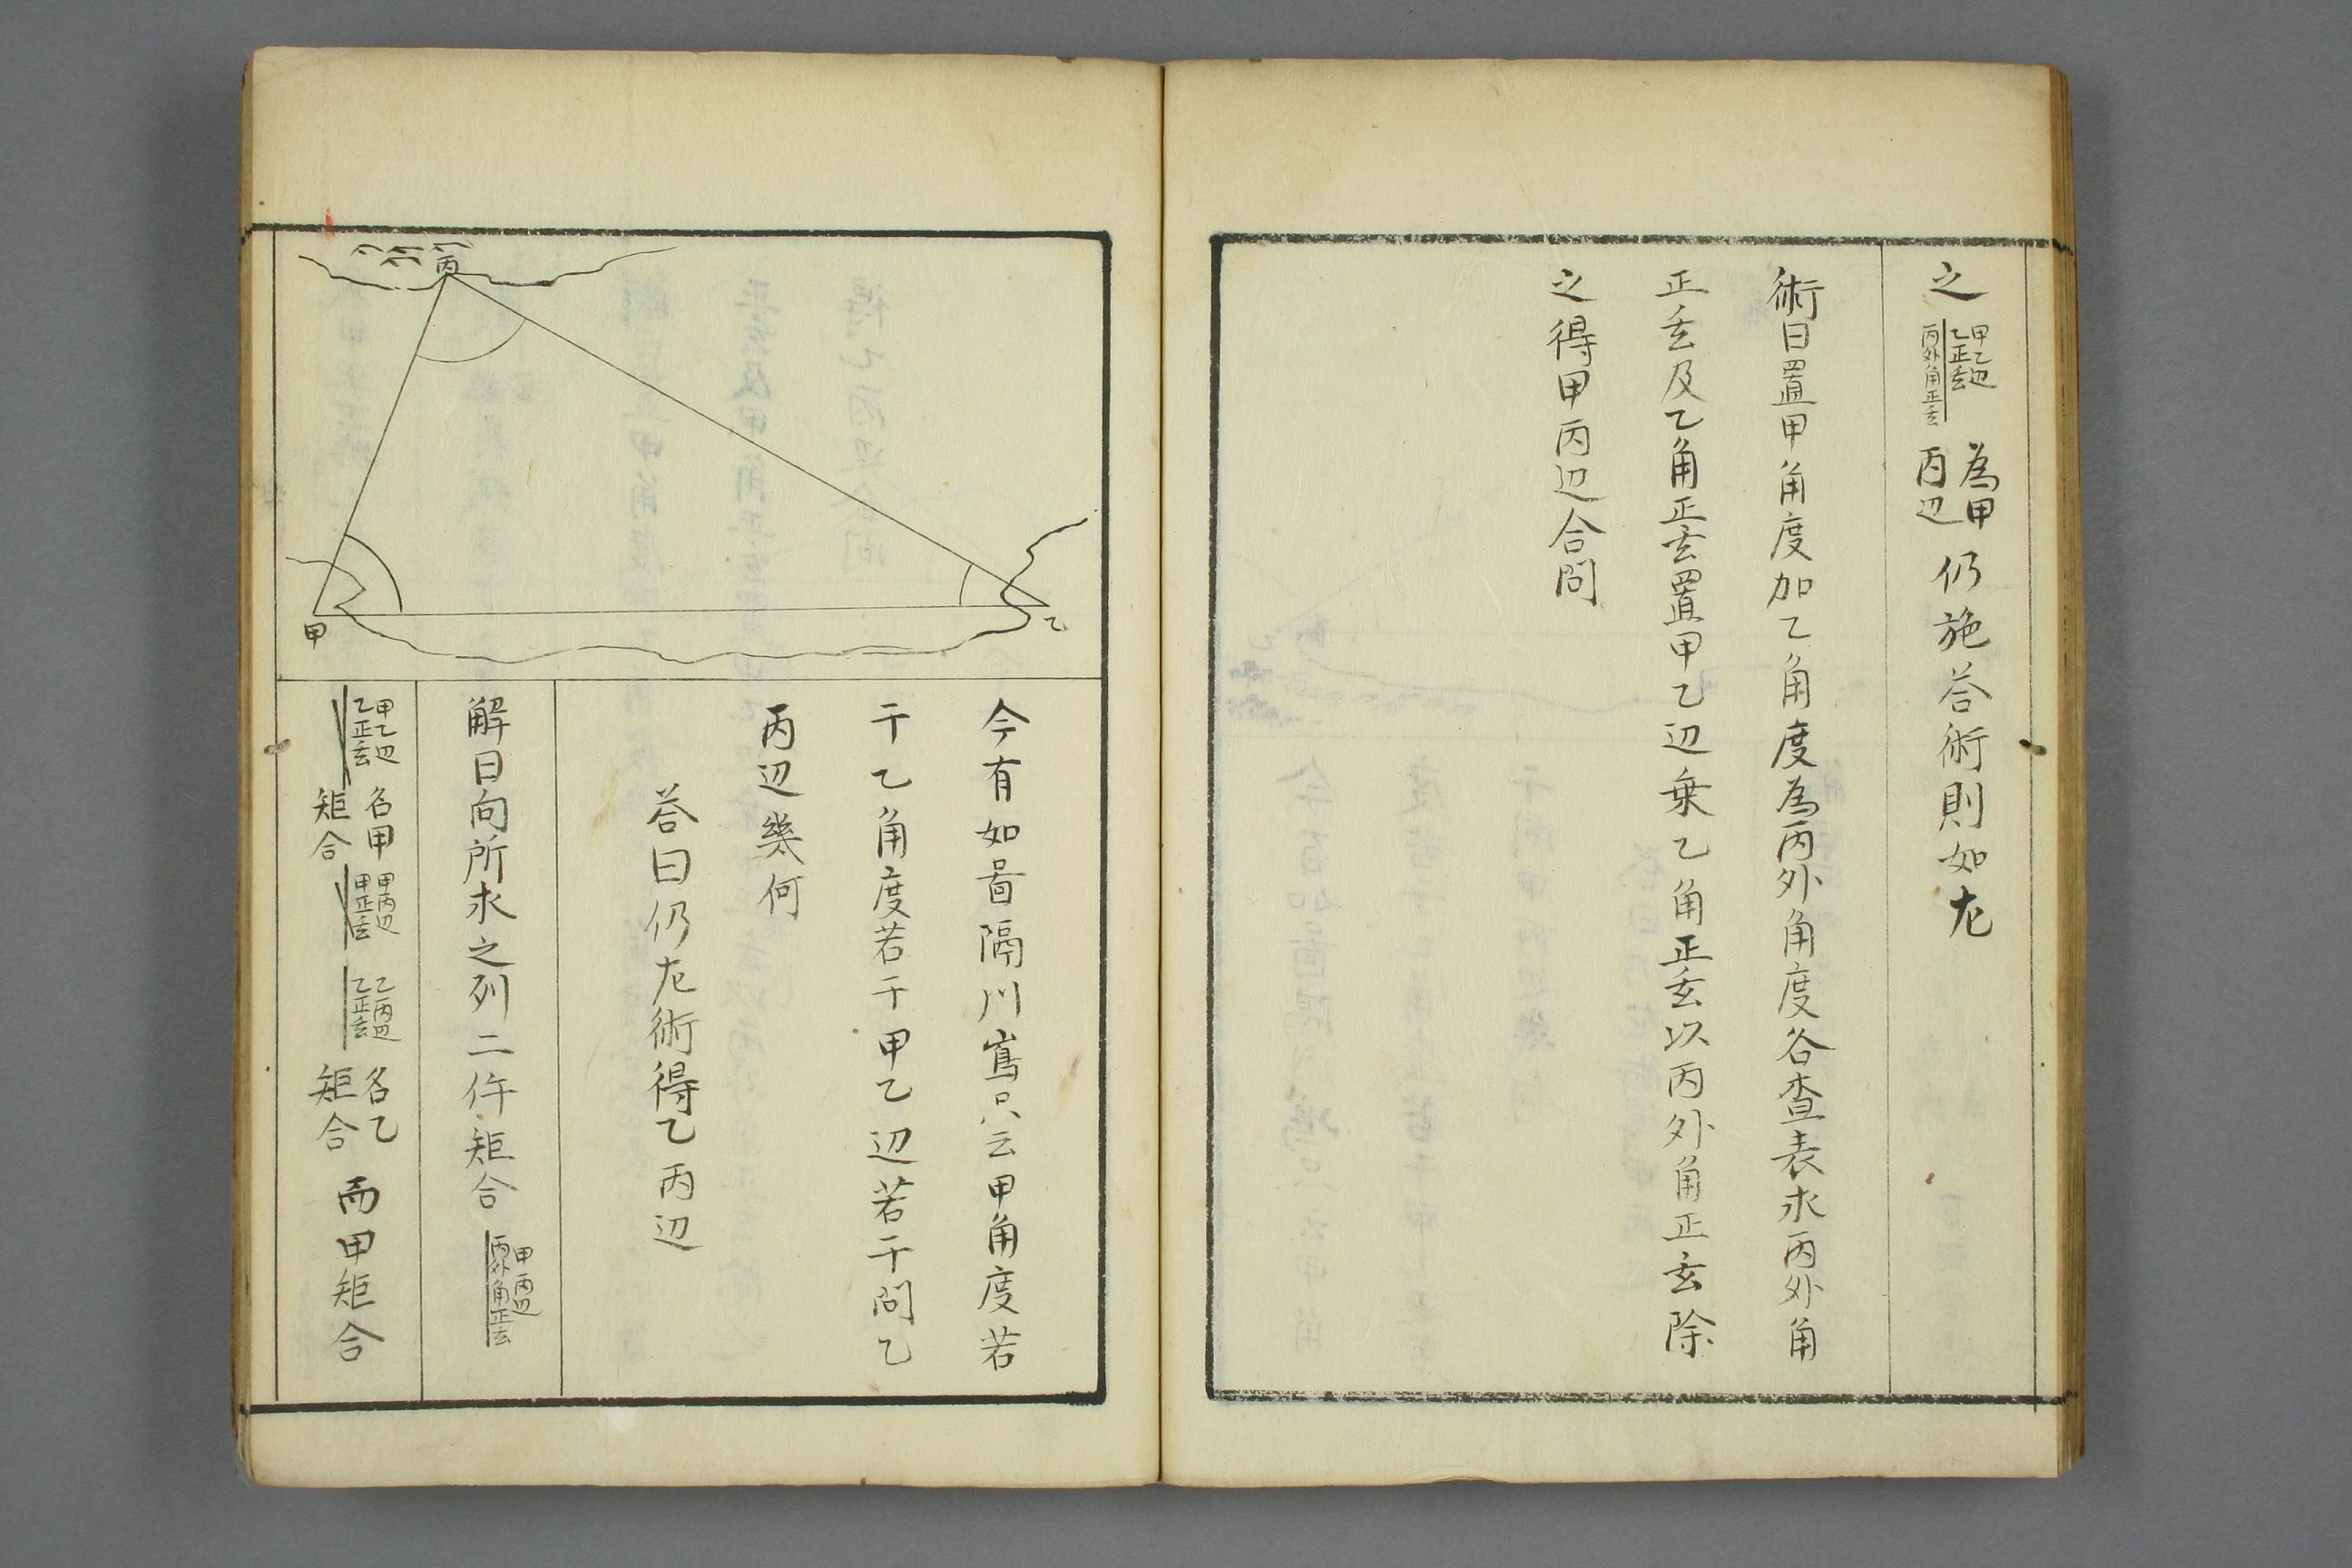 之 甲乙辺 乙正玄 丙外角正玄 為甲丙辺 仍施答術則如左
術曰置甲角度加乙角度為丙外角度各査表求丙外角
正玄及乙角正玄置甲乙辺乗乙角正玄以丙外角正玄除
之得甲丙辺合問
丙
甲
乙
今有如啚隔川嶌只云甲角度若
干乙角度若干甲乙辺若干問乙
丙辺幾何
答曰仍左術得乙丙辺
解曰向所求之列二件矩合 甲丙辺 丙外角正玄
甲乙辺 乙正玄 名甲矩合 甲丙辺 甲正玄 乙丙辺 乙正玄 名乙矩合 而甲矩合